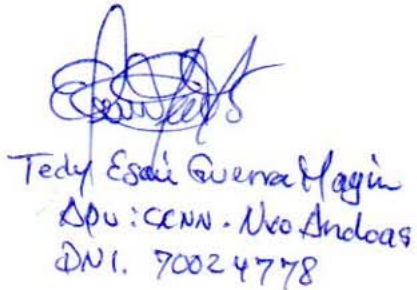 Tedy Esaú Guerra Magin
Apu: CCNN. Nvo Andoas
DNI. 70024778